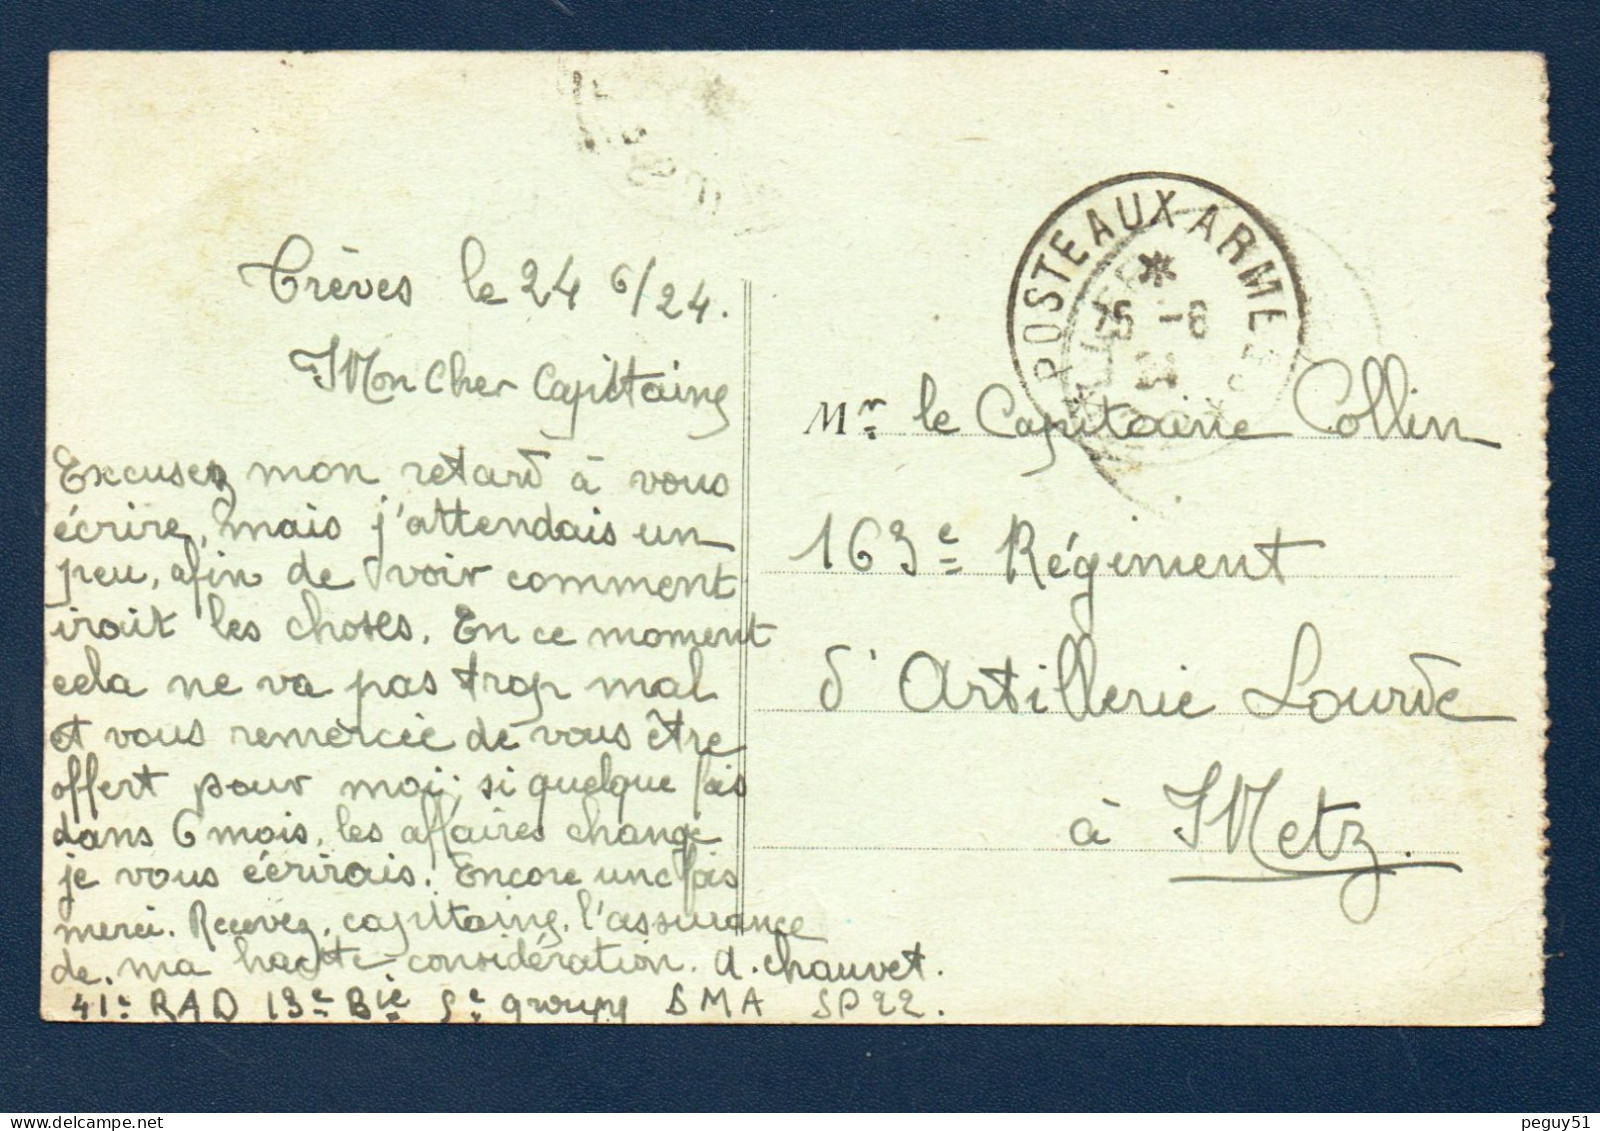 Trèves le 24 6/24.
Mon Cher Capitaine
Excusez mon retard à vous
écrire, mais j'attendais un
peu, afin de voir comment
irait les choses. En ce moment
cela ne va pas trop mal
et vous remercie de vous être
offert pour moi; si quelque fois
dans 6 mois, les affaires change
je vous écrirais. Encore une fois
merci. Recevez, capitaine, l'assurance
de, ma haute considération. A. Chauvet.
41e RAD 13e Bie 5e groupe SMA SP 22.
POSTE AUX ARMEES
25 -6
24
Mr le Capitaine Collin
163e Régiment
d'Artillerie Lourde
à Metz.
peguy51